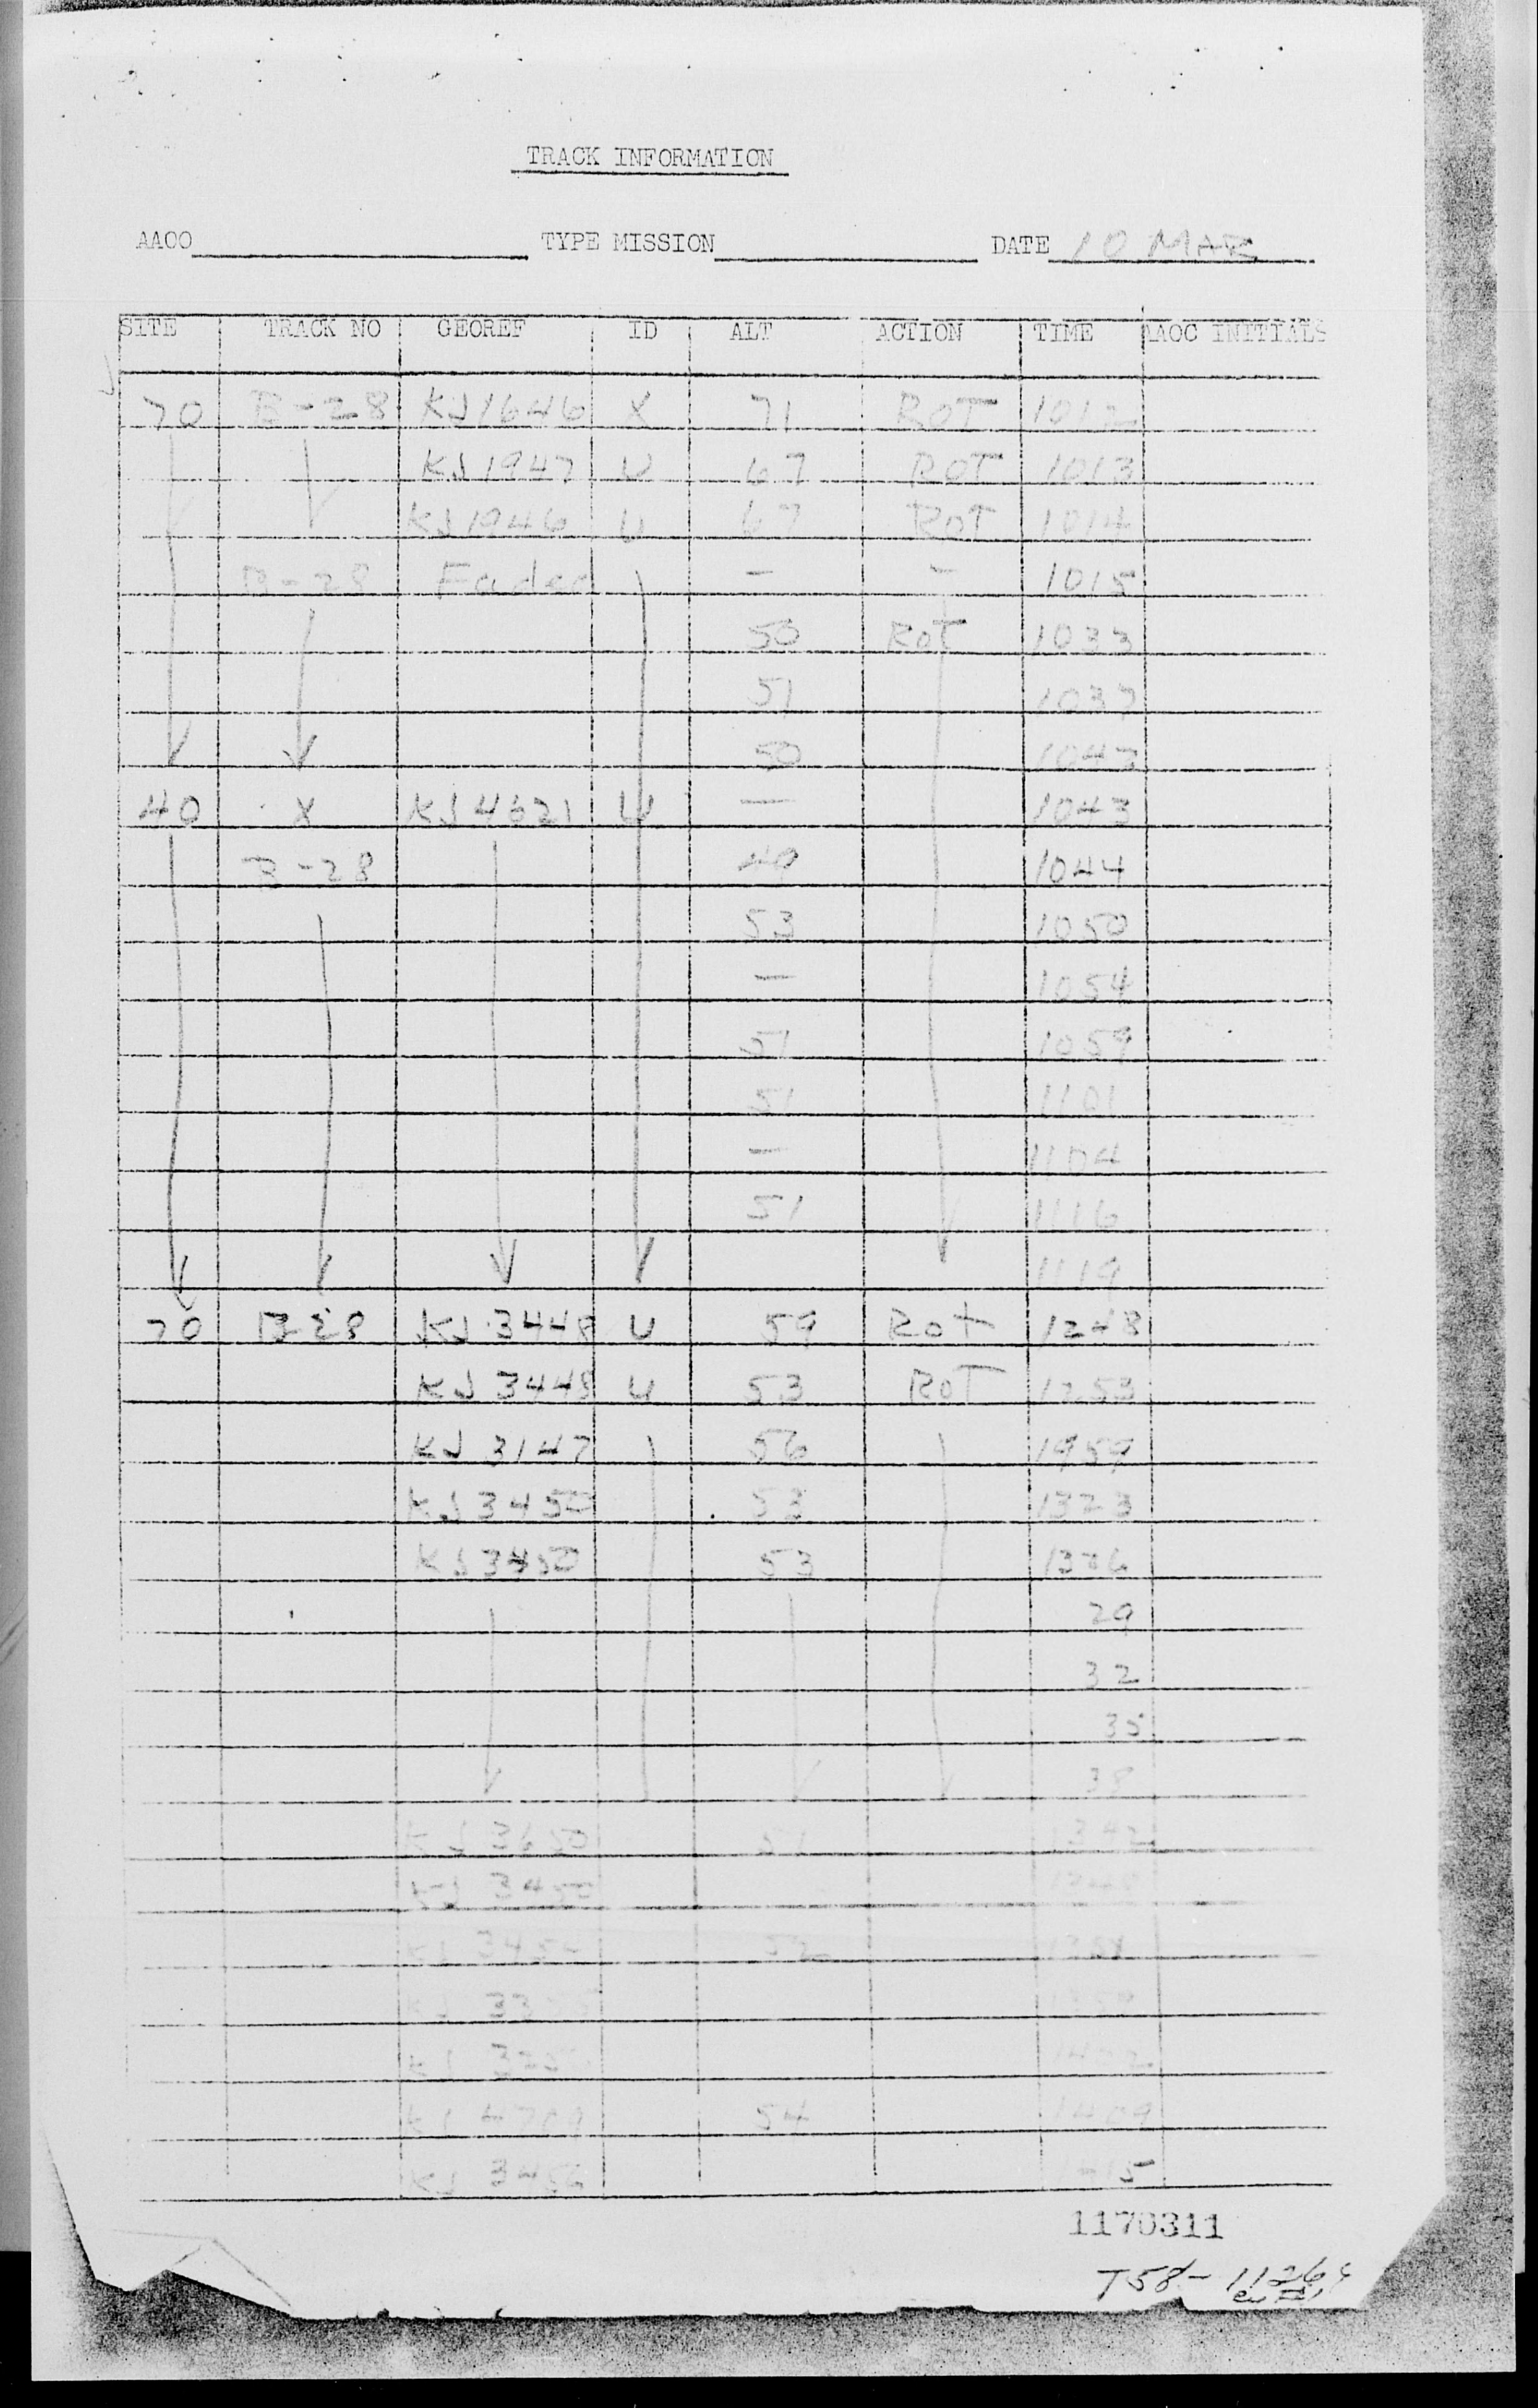 TRACK INFORMATION
AAOO TYPE MISSION DATE 10 MAR
SITE TRACK NO GEOREF ID ALT ACTION TIME AAOC INITIALS
70 B-28 KJ1646 X 71 ROT 1012
KJ1947 U 67 ROT 1013
KJ1946 U 67 ROT 1014
B-28 Faded - - 1015
50 ROT 1033
51 1037
50 1043
40 X KJ4621 U - 1043
B-28 49 1044
53 1050
- 1054
51 1059
51 1101
- 1104
51 1116
1119
70 B-28 KJ 3448 U 59 Rot 1248
KJ 3448 U 53 ROT 1253
KJ 3147 56 1959
KJ 3450 53 1323
KJ 3450 53 1326
29
32
35
38
KJ 3650 51 1342
KJ 3450
KJ 52
KJ
KJ
54 1409
KJ 3456 1415
1170311
T58-11264